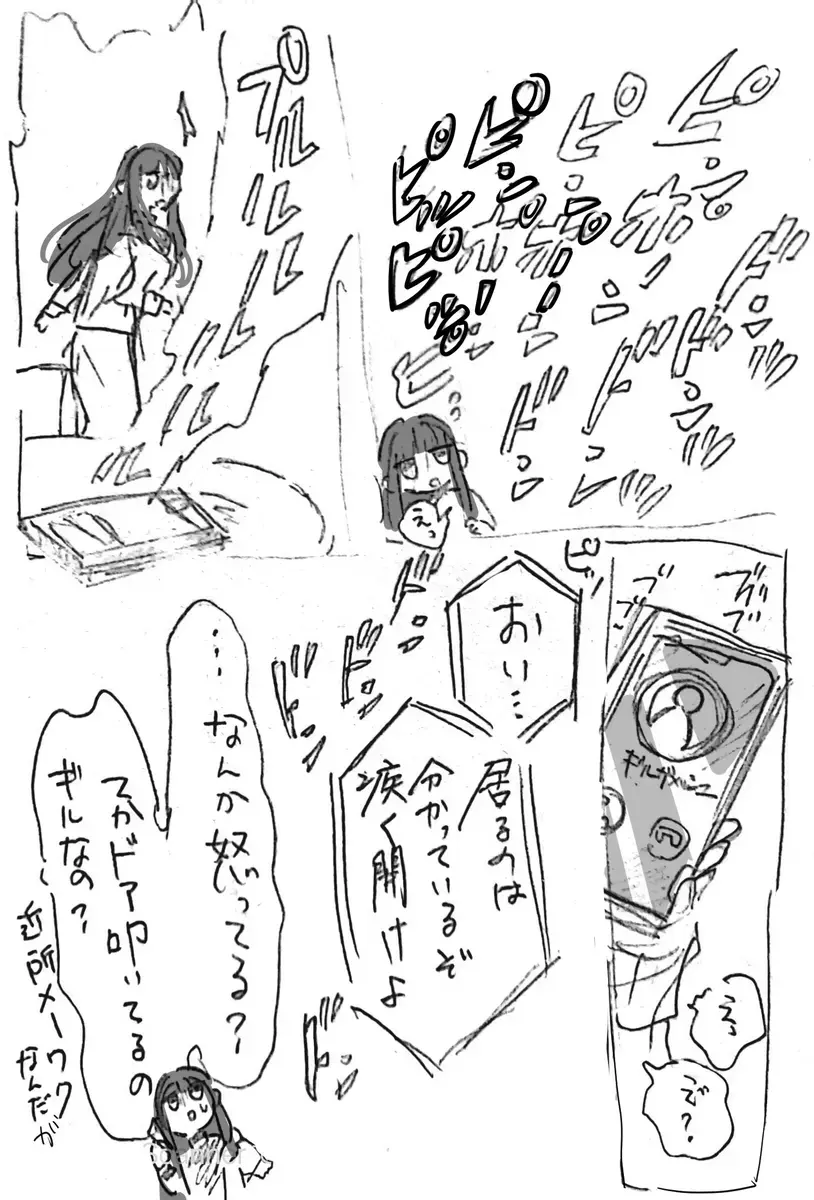 ピンポーン
ピンポーン
ピンポーン
ピッ
ピンポーン
ドンドンッ
ドンドンッ
ドンドンッ
えっ
プルルルルル
ルルルル
ブブブ
ブブブ
ギルガメッシュ
えっ
で?
ピッ
おい…
居るのは
分かっているぞ
疾く開けよ
ドンドンドンッ
ドンッ
…なんか怒ってる?
てかドア叩いてるの
ギルなの?
近所メーワク
なんだが